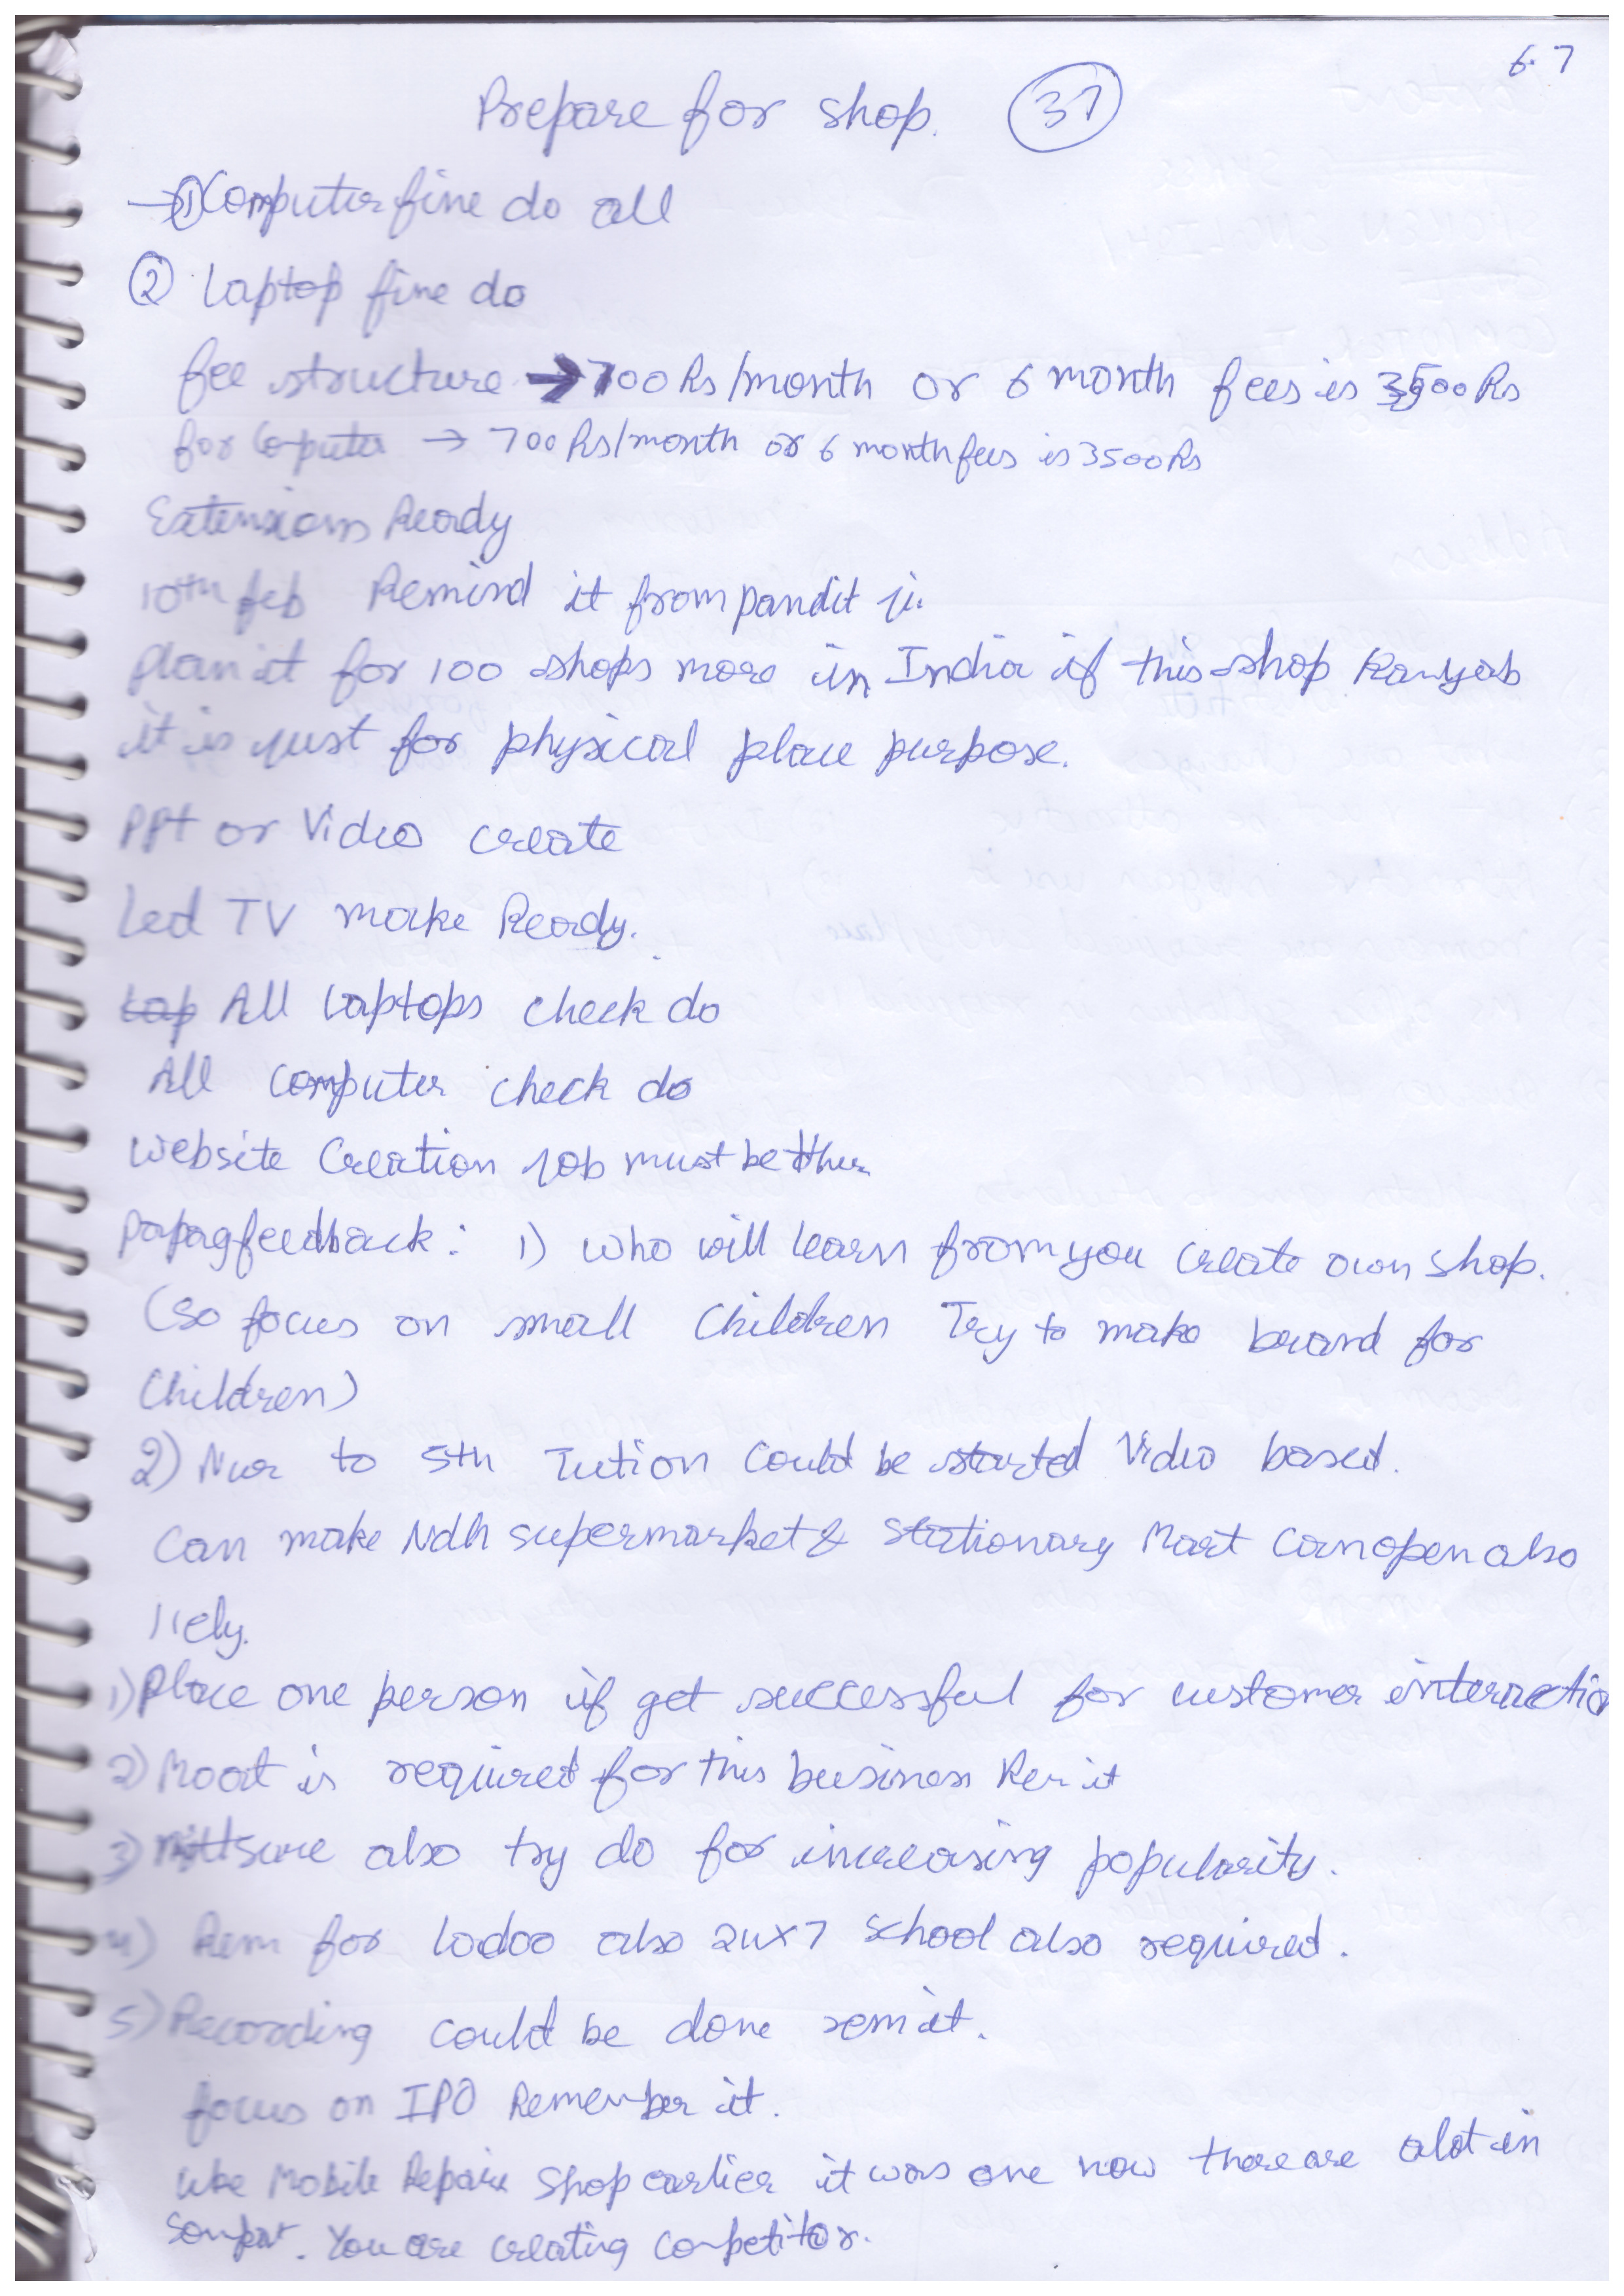 6.7
Prepare for shop. 37
→ ① Computer fine do all
② Laptop fine do
fee structure → 700 Rs/month or 6 month fees is 3500 Rs
for Coputer → 700 Rs/month or 6 month fees is 3500 Rs
Extensions Ready
10th feb Remind it from pandit ji.
plan it for 100 shops more in India if this shop Kamyab
it is just for physical place purpose.
PPt or Video create
Led TV make Ready.
Lap All Laptops check do
All computer check do
Website Creation job must be there
feedback: 1) who will learn from you create own shop.
(so focus on small children Try to make brand for
Children)
2) Nur to 5th Tution could be started Video based.
Can make Ndh supermarket & stationary Mart can open also
1) Place one person if get successful for customer interactio
2) Moat is required for this business Rem it
3) also try do for increasing popularity.
4) Rem for also 24x7 school also required.
5) Recording could be done rem it.
focus on IPO Remember it.
like Mobile Repair shop earlier it was one now there are alot in
Sonipat. You are creating competitor.